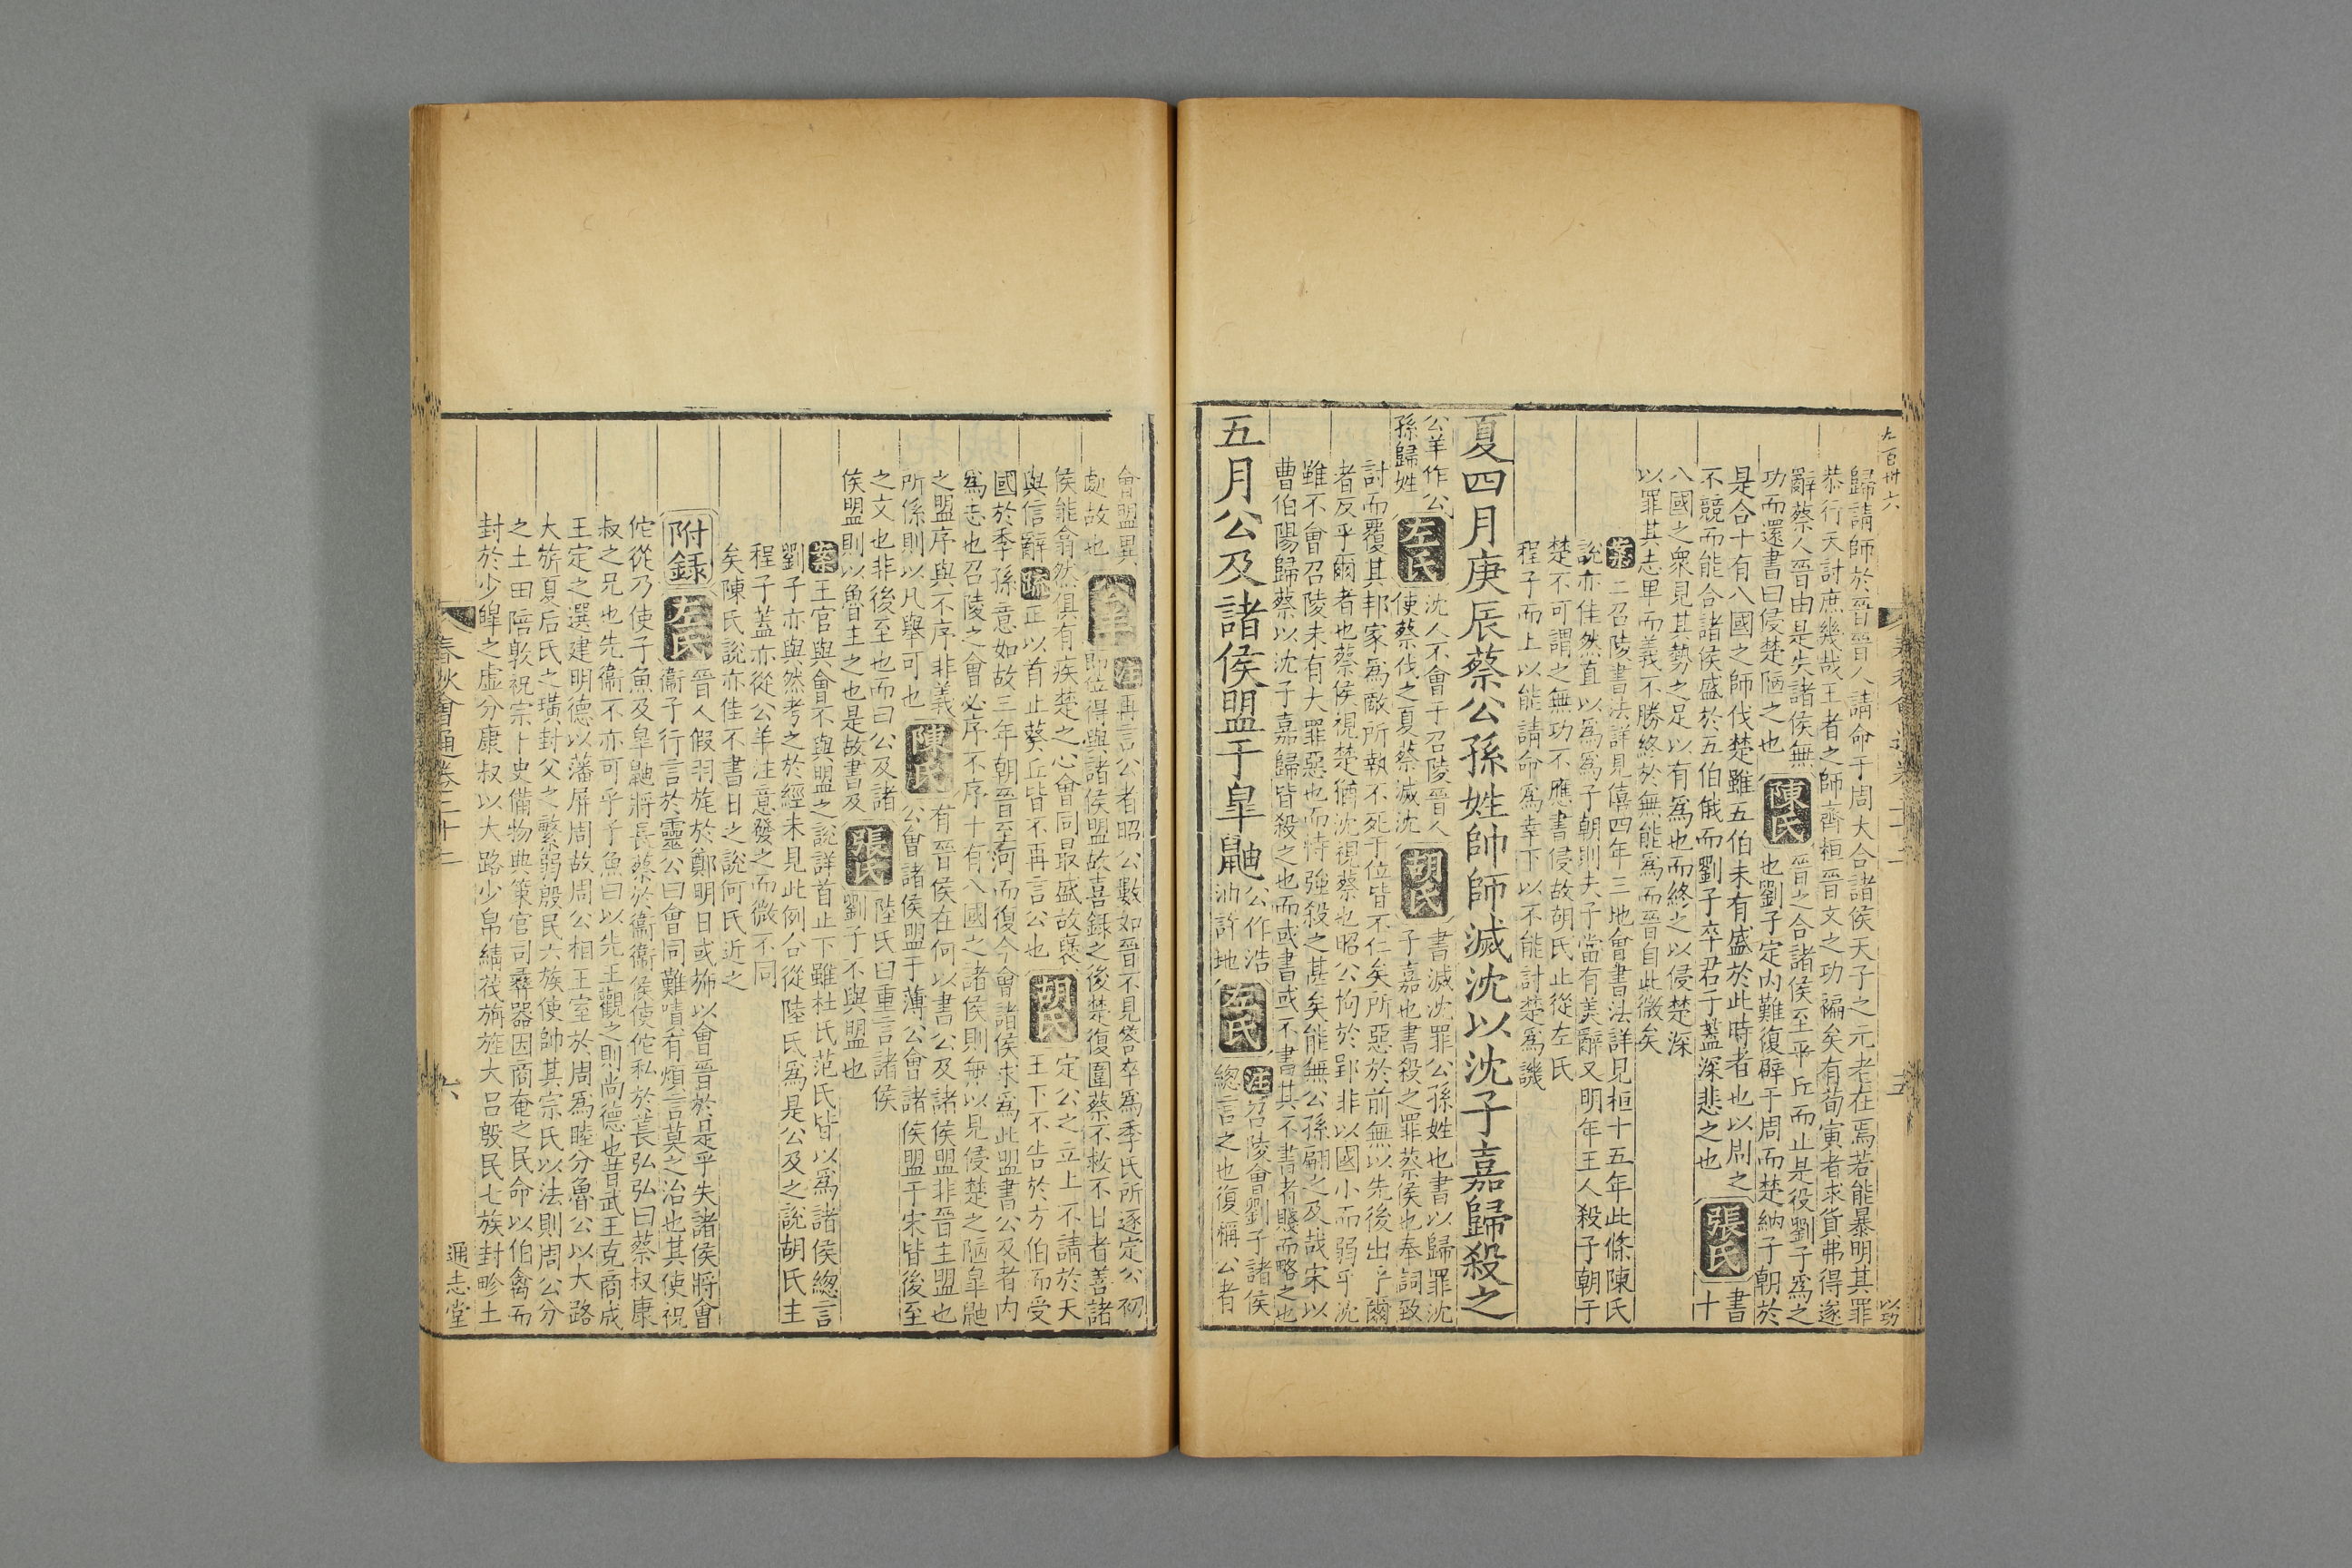 歸請師於晉晉人請命于周大合諸侯天子之元老在焉若能暴明其罪
恭行天討庶幾哉王者之師齊桓晉文之功褊矣有荀寅者求貨弗得遂
辭蔡人晉由是失諸侯無
功而還書曰侵楚陋之也
陳氏
晉之合諸侯至平丘而止是役劉子爲之
也劉子定内難復辟于周而楚納子朝於
是合十有八國之師伐楚雖五伯未有盛於此時者也以則之
不競而能合諸侯盛於五伯俄而劉子卒君子蓋深悲之也
張氏
書
十
八國之衆見其勢之足以有爲也而終之以侵楚深
以罪其志卑而義不勝終於無能爲而晉自此微矣
案
二召陵書法詳見僖四年三地會書法詳見桓十五年此條陳氏
說亦佳然直以爲爲子朝則夫子當有美辭又明年王人殺子朝于
楚不可謂之無功不應書侵故胡氏止從左氏
程子而上以能請命爲幸下以不能討楚爲譏
夏四月庚辰蔡公孫姓帥師滅沈以沈子嘉歸殺之
公羊作公
孫歸姓
左氏
沈人不會于召陵晉人
使蔡伐之夏蔡滅沈
胡氏
書滅沈罪公孫姓也書以歸罪沈
子嘉也書殺之罪蔡侯也奉詞致
討而覆其邦家爲敵所執不死于位皆不仁矣所惡於前無以先後出乎爾
者反乎爾者也蔡侯視楚猶沈視蔡也昭公拘於郢非以國小而弱乎沈
雖不會召陵未有大罪惡也而恃強殺之甚矣能無公孫翩之及哉宋以
曹伯陽歸蔡以沈子嘉歸皆殺之也而或書或不書其不書者賤而略之也
五月公及諸侯盟于皐鼬
公作浩
油許地
左氏
注
召陵會劉子諸侯
總言之也復稱公者
會盟異
處故也
公羊
注
再言公者昭公數如晉不見荅卒爲季氏所逐定公初
即位得與諸侯盟故喜録之後楚復圍蔡不救不日者善諸
侯能翕然俱有疾楚之心會同最盛故襃
與信辭
疏
正以首止葵丘皆不再言公也
胡氏
定公之立上不請於天
王下不告於方伯而受
國於季孫意如故三年朝晉至河而復今會諸侯求爲此盟書公及者内
爲志也召陵之會必序不序十有八國之諸侯則無以見侵楚之陋皐鼬
之盟序與不序非義
所係則以凡舉可也
陳氏
有晉侯在何以書公及諸侯盟非晉主盟也
公會諸侯盟于薄公會諸侯盟于宋皆後至
之文也非後至也而曰公及諸
侯盟則以魯主之也是故書及
張氏
陸氏曰重言諸侯
劉子不與盟也
案
王官與會不與盟之說詳首止下雖杜氏范氏皆以爲諸侯總言
劉子亦與然考之於經未見此例合從陸氏爲是公及之說胡氏主
程子蓋亦從公羊注意發之而微不同
矣陳氏說亦佳不書日之說何氏近之
附録
左氏
晉人假羽旄於鄭明日或旆以會晉於是乎失諸侯將會
衞子行言於靈公曰會同難嘖有煩言莫之治也其使祝
佗從乃使子魚及皐鼬將長蔡於衞衞侯使佗私於萇弘弘曰蔡叔康
叔之兄也先衞不亦可乎子魚曰以先王觀之則尚德也昔武王克商成
王定之選建明德以藩屏周故周公相王室於周爲睦分魯公以大路
大旂夏后氏之璜封父之繁弱殷民六族使帥其宗氏以法則周公分
之土田陪敦祝宗卜史備物典策官司彝器因商奄之民命以伯禽而
封於少皥之虛分康叔以大路少帛綪茷旃旌大呂殷民七族封畛土
春秋會通卷二十二
六
通志堂